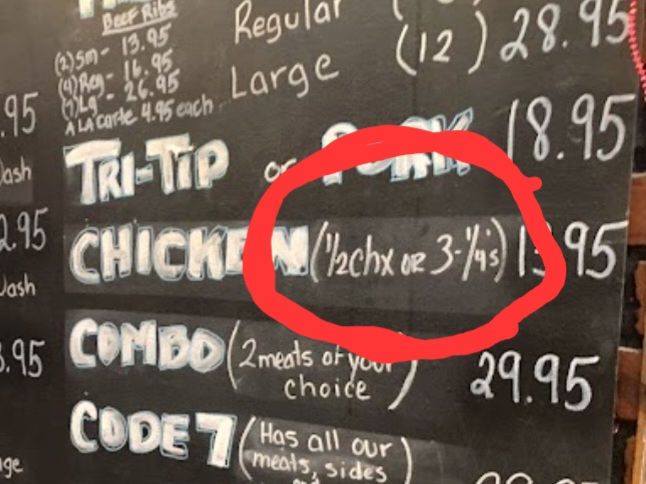 Beef Ribs
(2) Sm - 13.95
(4) Reg - 16.95
(7) Lg - 26.95
A LA Carte 4.95 each
Regular
Large (12) 28.95
.95
TRI-TIP or PORK 18.95
Dash
2.95
CHICKEN (1/2 chx or 3-1/4's) 95
Dash
COMBO (2 meats of your choice) 29.95
.95
CODE 7 (Has all our
meats, sides